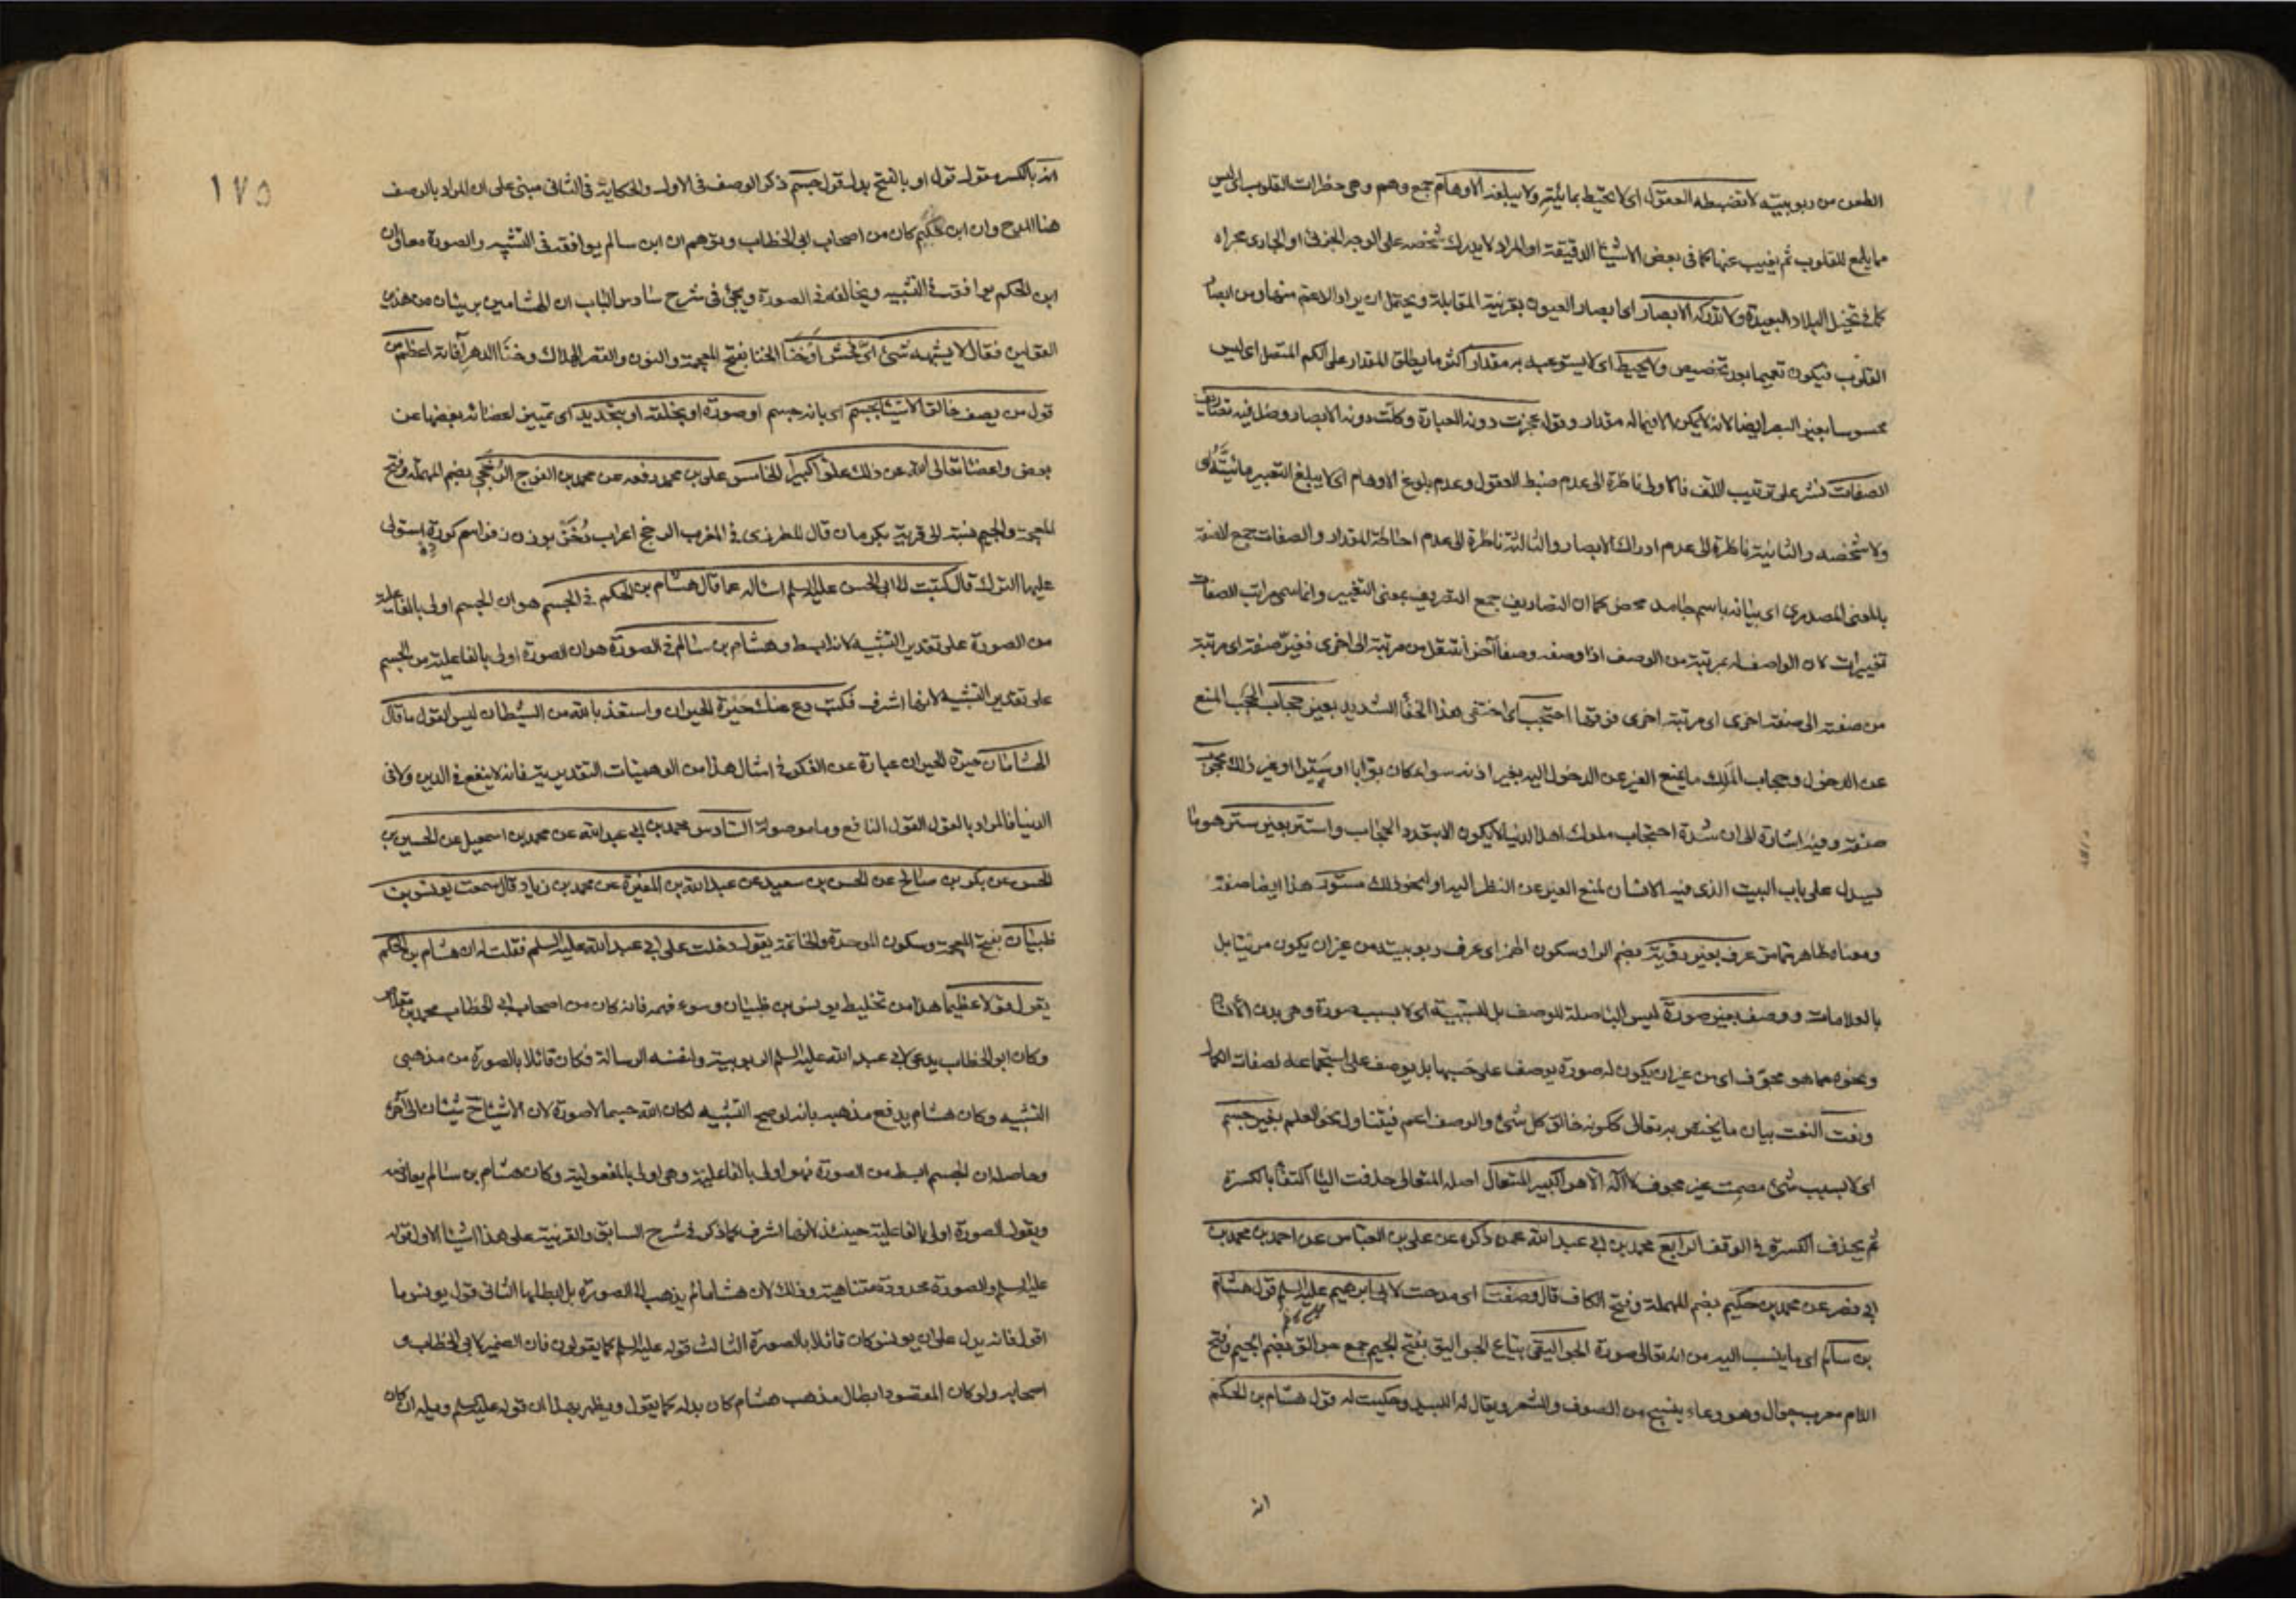 الطعن من ربوبيته لا تضبطه العقول اى لا تحيط بمائيته ولا تبلغه الاوهام جمع وهم وهى خطرات القلوب اى ليس
مما يلمع للقلوب ثم يغيب عنها كما فى بعض الاشياء الدقيقة او المراد لا يدرك شخصه على الوجه الجزئى او الجارى مجراه
كما فى تخيل البلاد البعيدة ولا تدركه الابصار اى ابصار العيون بقرينة المقابلة ويحتمل ان يراد الاعم منها ومن ابصار
القلوب فيكون تعميما بعد تخصيص ولا يحيط اى لا يستوعب به مقدار اكثر ما يطلق المقدار على الكم المتصل اى ليس
محسوسا بغير البصر ايضا لانه لا يمكن الا فيما له مقدار وقوله عجزت دونه العبارة وكلت دونه الابصار وضل فيه تصاريف
الصفات نشر على ترتيب اللف فالاولى ناظرة الى عدم ضبط العقول وعدم بلوغ الاوهام اى لا يبلغ التعبير مائيته
ولا شخصه والثانية ناظرة الى عدم ادراك الابصار والثالثة ناظرة الى عدم احاطة المقدار والصفات جمع الصفة
بالمعنى المصدرى اى بيانه باسم جامد محض كما ان التصاريف جمع التصريف بمعنى التغيير وانما سمى مراتب الصفات
تغييرات لان الواصف له بمرتبة من الوصف اذا وصفه وصفا آخر انتقل من مرتبة الى اخرى فغير صفته اى مرتبة
من صفته الى صفته اخرى اى مرتبة اخرى فوقها احتجب اى اختفى هذا الخفاء الشديد بغير حجاب الحجب المنع
عن الدخول وحجاب الملك ما يمنع الغير عن الدخول اليه بغير اذنه سواء كان بوابا او سترا او غير ذلك محجوب
صفته وفيه اشارة الى ان شدة احتجاب ملوك اهل الدنيا لا يكون الا بتعدد الحجاب واستتر بغير ستر هو ما
يسدل على باب البيت الذى فيه الانسان لمنع الغير عن النظر اليه او لنحو ذلك مستور هذا ايضا صفة
ومعناه ظاهر مما مر عرف بغير رؤية بضم الراء وسكون الهمز اى عرف ربوبيته من غير ان يكون مرئيا بل
بالعلامات ووصف بغير صورة ليس الباء صلة للوصف بل للسببية اى لا بسبب صورة وهى بدن الانسان
ونحوه مما هو مجوف اى من غير ان يكون له صورة يوصف على حسبها بل يوصف على استجماعه لصفات الكمال
ونعت النعت بيان ما يختص به تعالى ككونه خالق كل شئ والوصف اعم فيتناول نحو العلم بغير جسم
اى لا بسبب شئ مصمت غير مجوف لا اله الا هو الكبير المتعال اصله المتعالى حذفت الياء اكتفاء بالكسرة
ثم يحذف الكسرة فى الوقف الرابع محمد بن ابى عبد الله عمن ذكره عن على بن العباس عن احمد بن محمد بن
ابى نصر عن محمد بن حكيم بضم المهملة وفتح الكاف قال وصفت اى مدحت لابى ابراهيم عليه السلم قول هشام
بن سالم اى ما ينسب اليه من انه تعالى صورة الجواليقى بياع الجواليق بفتح الجيم جمع جوالق بضم الجيم وفتح
اللام معرب جوال وهو وعاء ينسج من الصوف والشعر ويقال له اللبيد وحكيت له قول هشام بن الحكم
انه
١٧٥
انه بالكسر مقول قول او بالفتح بدل قول جسم ذكر الوصف فى الاول والحكاية فى الثانى مبنى على ان المراد بالوصف
هنا المدح وان ابن حكيم كان من اصحاب ابى الخطاب وتوهم ان ابن سالم يوافقه فى التشبيه والصورة معا وان
ابن الحكم يوافقه فى التشبيه ويخالفه فى الصورة ويجئ فى شرح سادس الباب ان الهشامين بريئان من هذين
القولين فقال لا يشبهه شئ اى فحش او خنا الخنا بفتح المعجمة والنون والقصر الهلاك وخنا الدهر آفاته اعظم من
قول من يصف خالق الاشياء بجسم اى بانه جسم او صورة او بخلقه او بتحديد اى تمييز لعضائه بعضها عن
بعض واعضاء تعالى الله عن ذلك علوا كبيرا الخامس على بن محمد رفعه عن محمد بن الفرج الرخجى بضم المهملة وفتح
المعجمة والجيم نسبة الى قرية بكرمان قال المطرزى فى المغرب الرخج اعراب رخذ بوزن زفر اسم كورة استولى
عليها الترك قال كتبت الى ابى الحسن عليه السلم اساله عما قال هشام بن الحكم فى الجسم هو ان الجسم اولى بالفاعلية
من الصورة على تقدير التشبيه لانه ابسط وهشام بن سالم فى الصورة هو ان الصورة اولى بالفاعلية من الجسم
على تقدير التشبيه لانها اشرف فكتب دع عنك حيرة الحيران واستعذ بالله من الشيطان ليس القول ما قال
الهشامان حيرة الحيران عبارة عن الفكر فى امثال هذا من الوهميات التقديرية فانه لا ينفع فى الدين ولا فى
الدنيا فالمراد بالقول القول النافع وما موصولة السادس محمد بن ابى عبد الله عن محمد بن اسمعيل عن الحسين بن
الحسن عن بكر بن صالح عن الحسن بن سعيد عن عبد الله بن المغيرة عن محمد بن زياد قال سمعت يونس بن
ظبيان بفتح المعجمة وسكون الموحدة والخاتمة يقول دخلت على ابى عبد الله عليه السلم فقلت له ان هشام بن الحكم
يقول قولا عظيما هذا من تخليط يونس بن ظبيان وسوء فهمه فانه كان من اصحاب ابى الخطاب محمد بن مقلاص
وكان ابو الخطاب يدعى لابى عبد الله عليه السلم الربوبية ولنفسه الرسالة فكان قائلا بالصورة من مذهبى
التشبيه وكان هشام يدفع مذهبه بانه لو صح التشبيه لكان الله جسما لا صورة لان الاشياء شيئان الى آخره
وحاصله ان الجسم ابسط من الصورة فهو اولى بالفاعلية وهى اولى بالمفعولية وكان هشام بن سالم يعارضه
ويقول الصورة اولى بالفاعلية حينئذ لانها اشرف كما ذكر فى شرح السابق والقرينة على هذا اشياء الاول قوله
عليه السلم والصورة محدودة متناهية وذلك لان هشاما لم يذهب الى الصورة بل ابطلها الثانى قول يونس وما
اقول فانه يدل على ان يونس كان قائلا بالصورة الثالث قوله عليه السلم كما يقولون فان الضمير لابى الخطاب و
اصحابه ولو كان المقصود ابطال مذهب هشام كان بدله كما يقول ويظهر بهذا ان قوله عليه السلم ويله ان كان